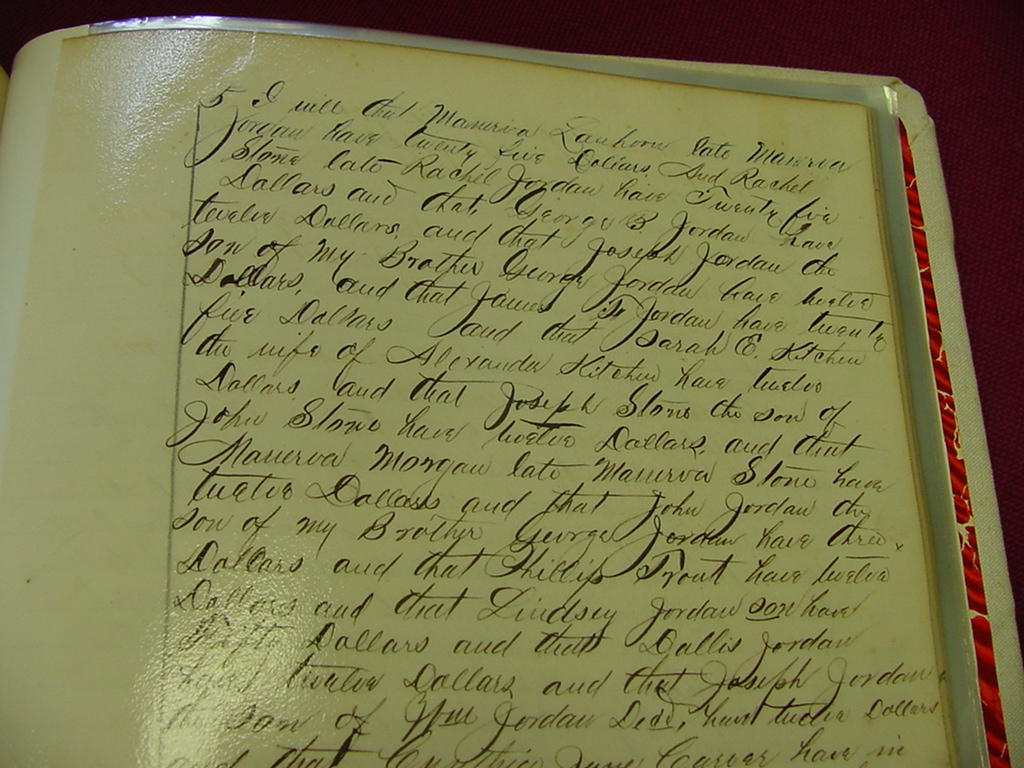 5 I will that Manerva Lanhorn late Manerva
Jordan have twenty five Dollars, And Rachel
Stone late Rachel Jordan have Twenty five
Dollars and that George B Jordan have
twelve Dollars, and that Joseph Jordan the
son of my Brother George Jordan have twelve
Dollars, and that James F Jordan have twenty
five Dollars and that Sarah E. Kitchen
the wife of Alexander Kitchen have twelve
Dollars and that Joseph Stone the son of
John Stone have twelve Dollars, and that
Manerva Morgan late Manerva Stone have
twelve Dollars and that John Jordan the
son of my Brother George Jordan have three
Dollars and that Phillip Trout have twelve
Dollars and that Lindsey Jordan son have
Fifty Dollars and that Dallis Jordan
have twelve Dollars and that Joseph Jordan
the son of Wm Jordan Decd, have twelve Dollars
and that Jane Carver have in